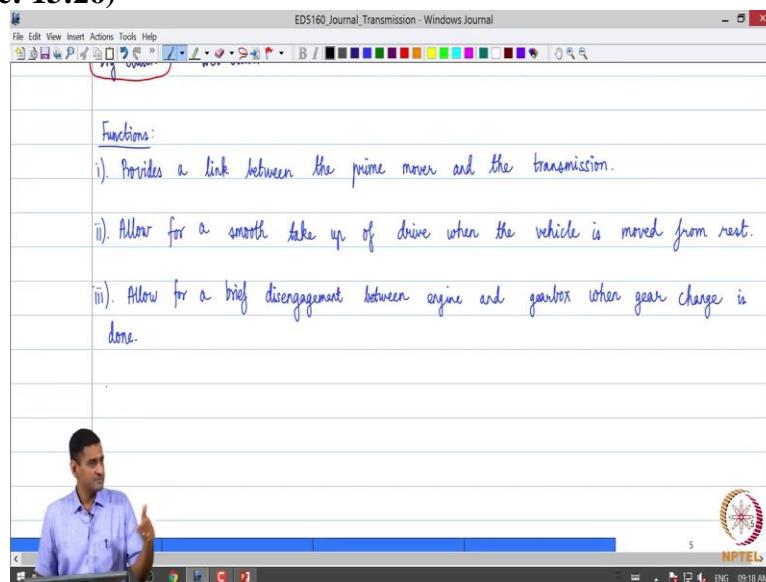 ED5160_Journal_Transmission - Windows Journal
File Edit View Insert Actions Tools Help
B I
Functions:
i). Provides a link between the prime mover and the transmission.
ii). Allow for a smooth take up of drive when the vehicle is moved from rest.
iii). Allow for a brief disengagement between engine and gearbox when gear change is
done.
5
NPTEL
ENG 09:18 AM